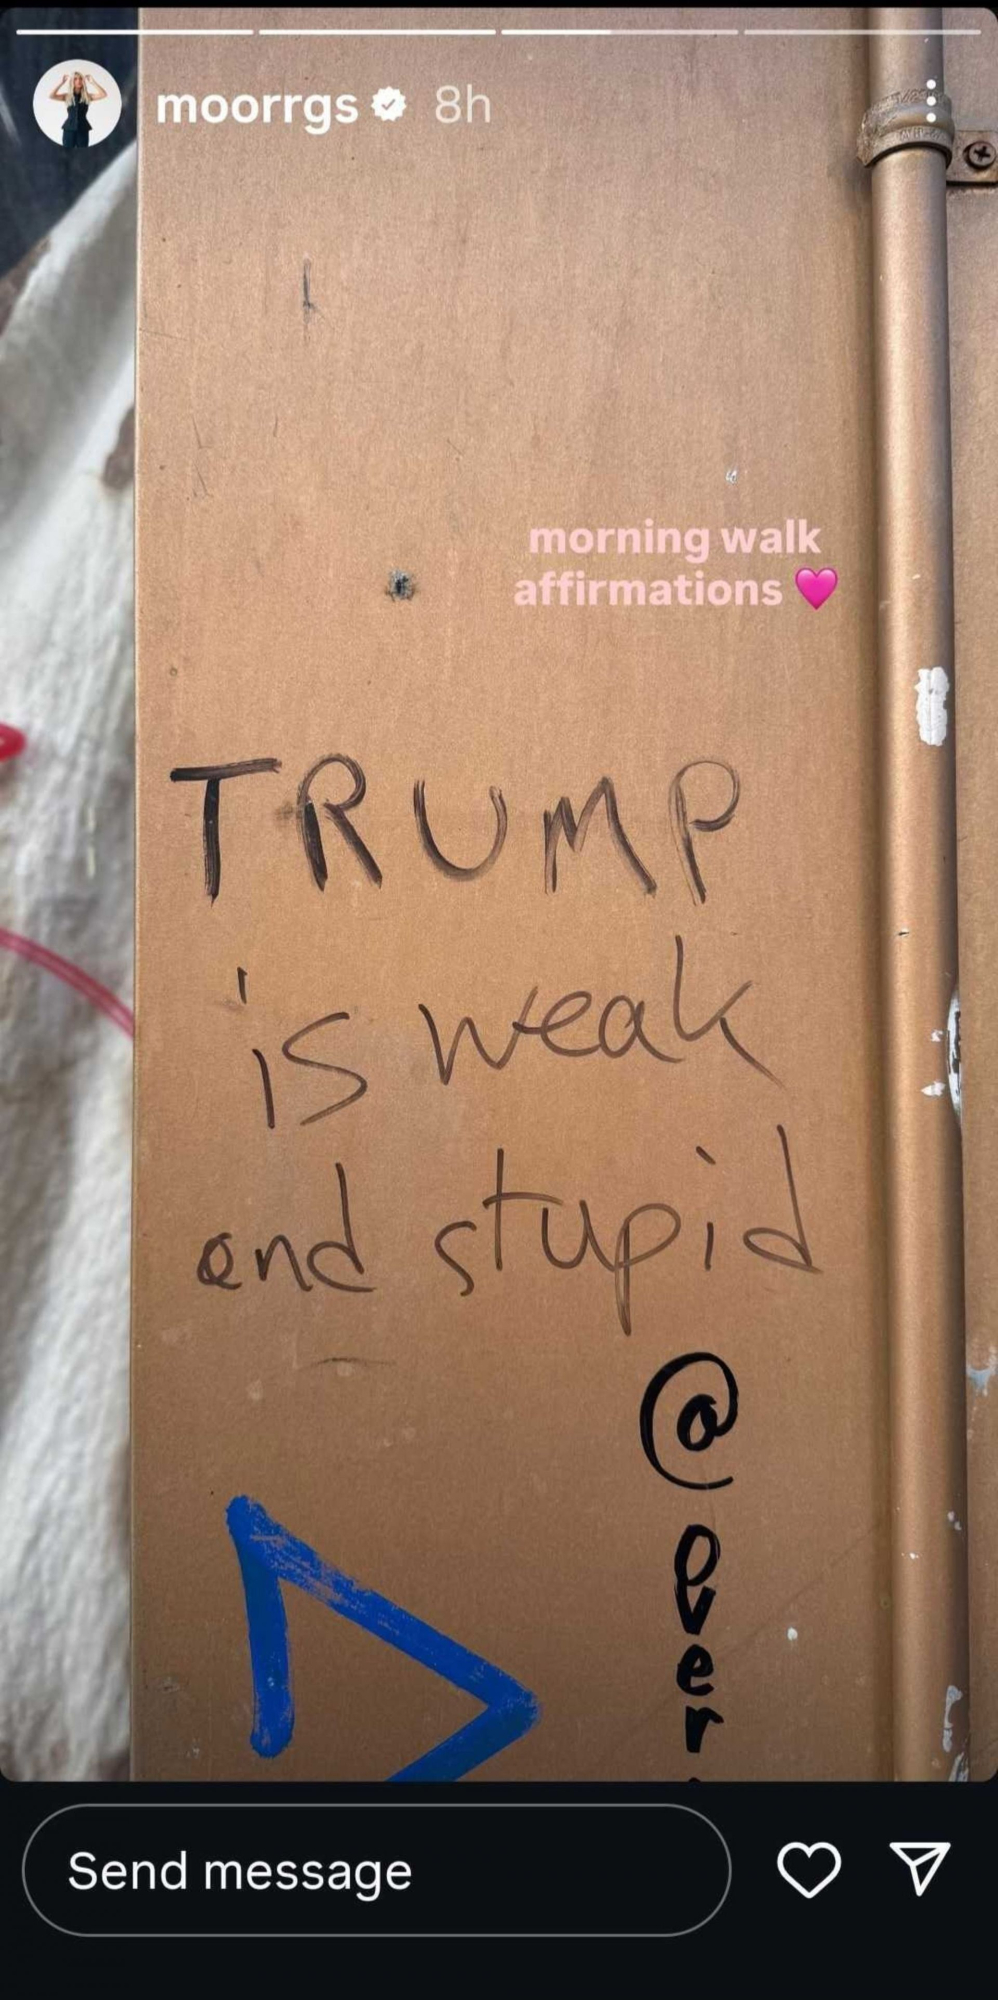 moorrgs 8h
morning walk
affirmations 🩷
TRUMP
is weak
and stupid
@
Send message